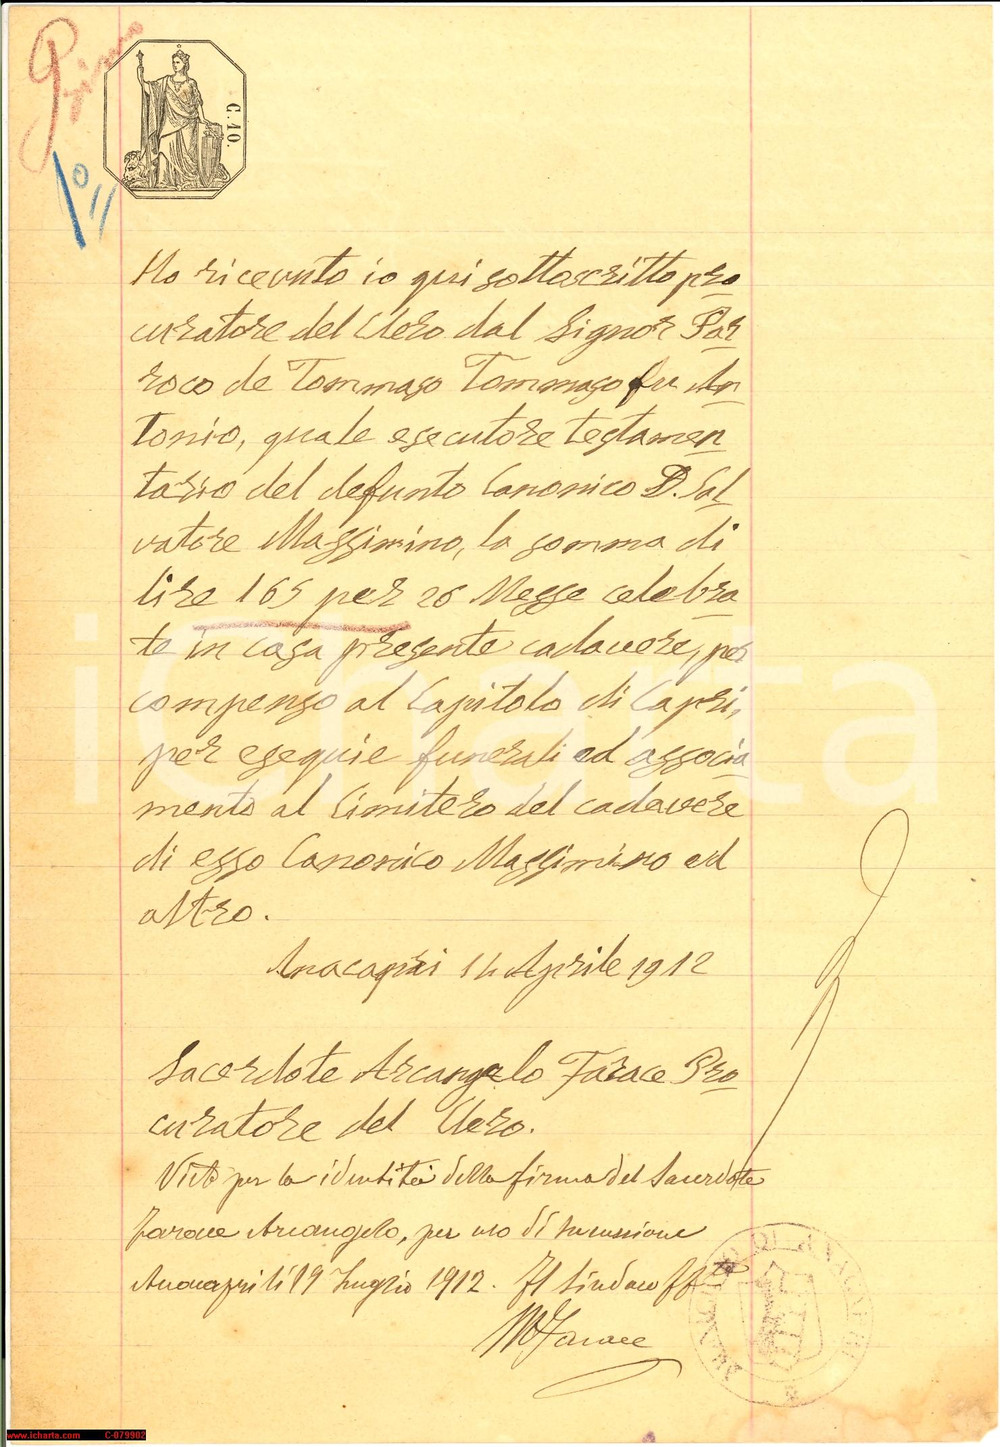 Primo
1º
C. 10.
Ho ricevuto io qui sottoscritto pro
curatore del Clero dal Signor Par
roco de Tommaso Tommaso fu An
tonio, quale esecutore testamen
tario del defunto Canonico D. Sal
vatore Massimino, la somma di
lire 165 per 26 Messe celebra
te in casa presente cadavere, per
compenso al Capitolo di Capri,
per esequie funerali ed associa
mento al Cimitero del cadavere
di esso Canonico Massimino ed
altro.
Anacapri 14 Aprile 1912
Sacerdote Arcangelo Farace Pro
curatore del Clero.
Visto per la identità della firma del Sacerdote
Farace Arcangelo, per uso di successione
Anacapri li 19 Luglio 1912. Il Sindaco ff to
M Farace
MUNICIPIO DI ANACAPRI
iCharta
www.icharta.com C-079902